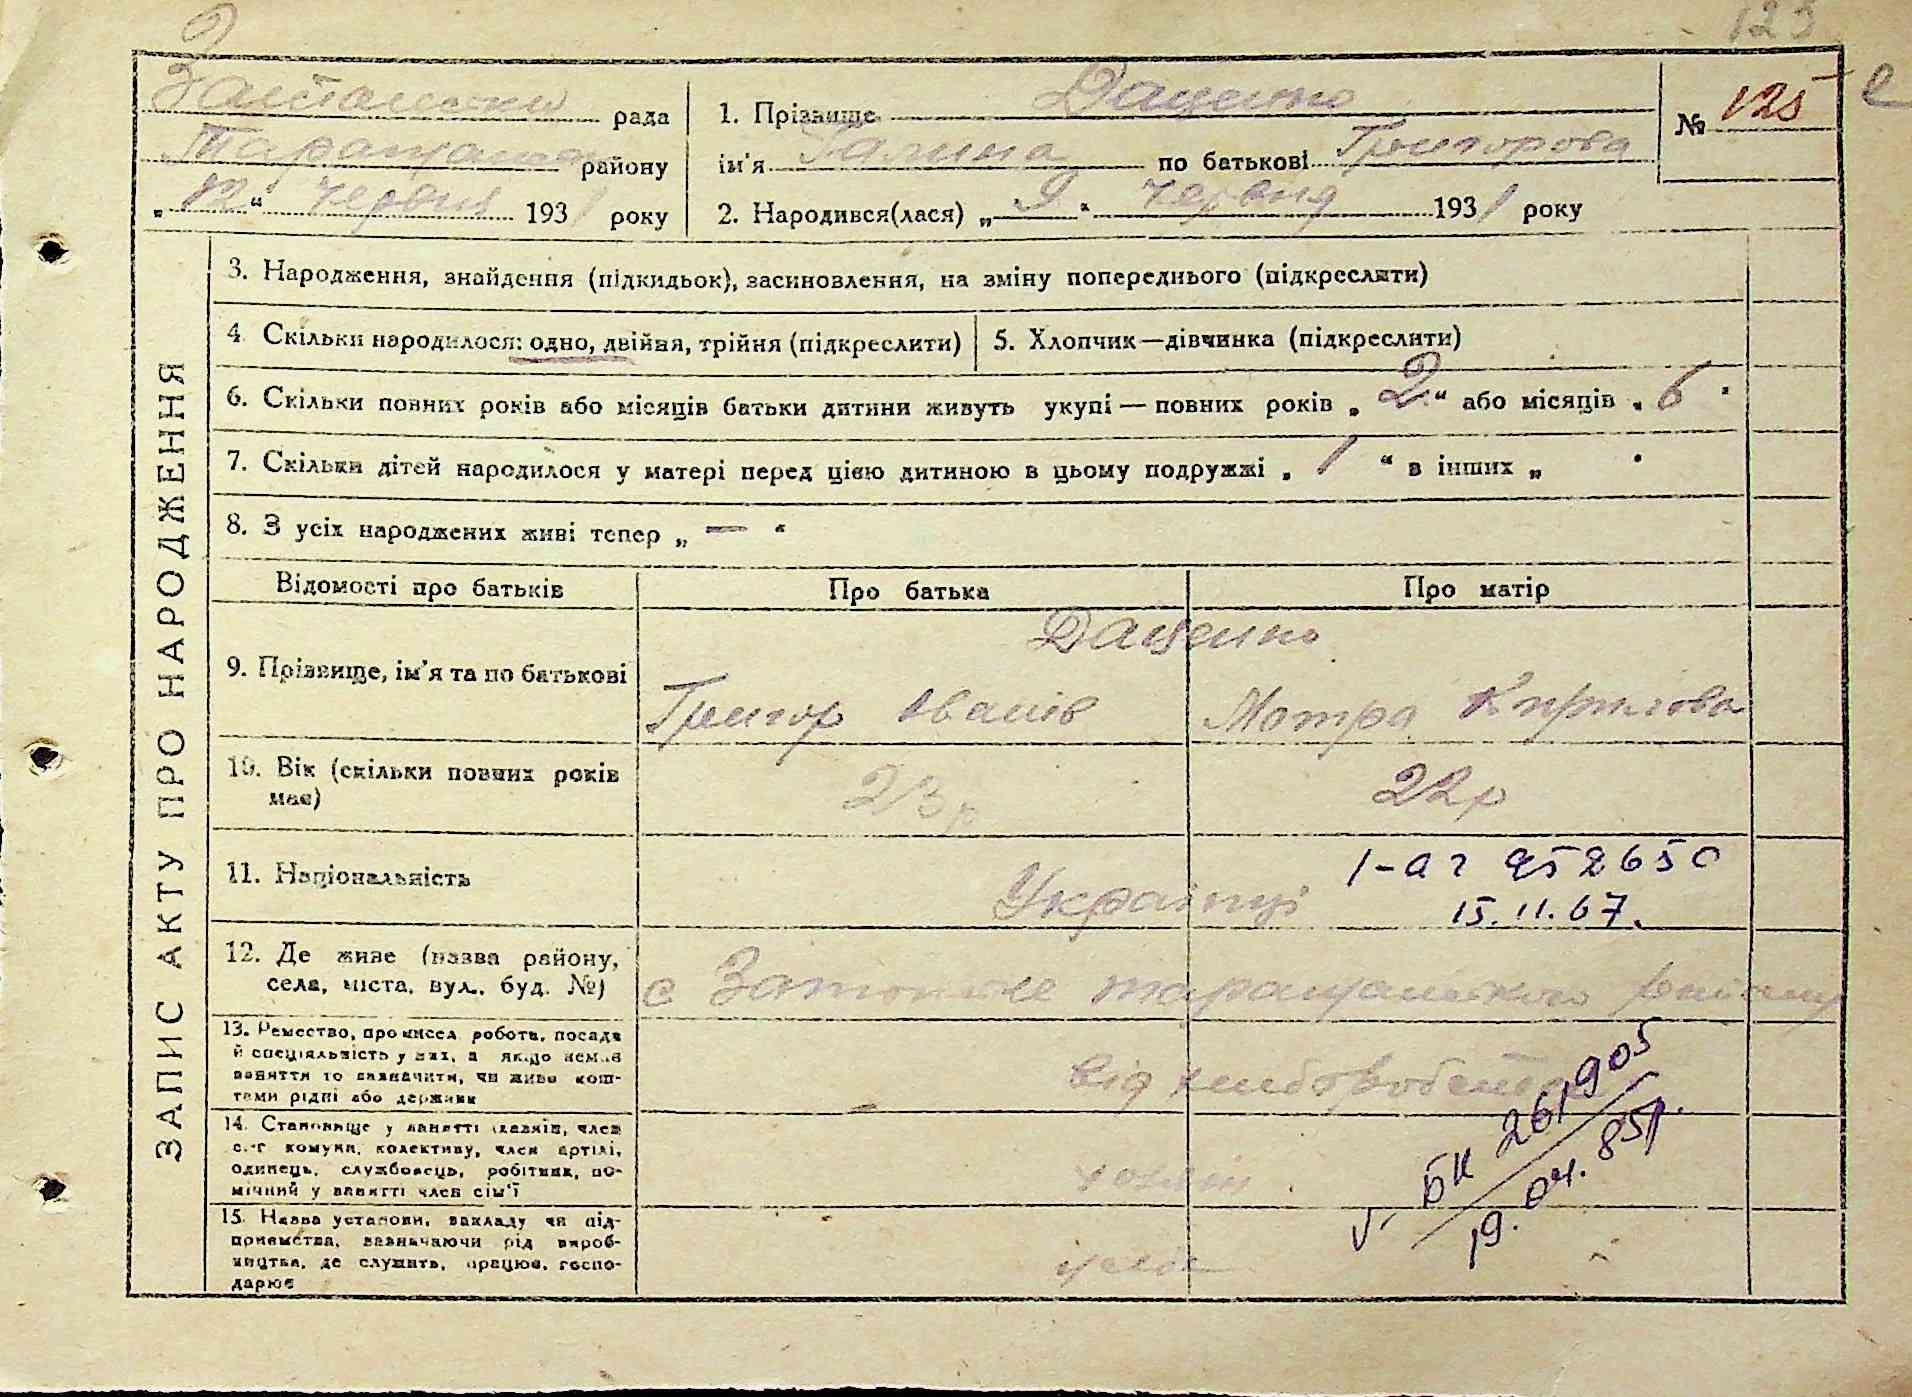 123
рада
1. Прізвище Даценко
№ 125
району
ім'я Галина по батькові Григорова
„12“ червня 1931 року
2. Народився(лася) „9“ червня 1931 року
ЗАПИС АКТУ ПРО НАРОДЖЕННЯ
3. Народження, знайдення (підкидьок), засиновлення, на зміну попереднього (підкреслити)
4. Скільки народилося: одно, двійня, трійня (підкреслити)
5. Хлопчик—дівчинка (підкреслити)
6. Скільки повних років або місяців батьки дитини живуть укупі — повних років „2“ або місяців „6“
7. Скільки дітей народилося у матері перед цією дитиною в цьому подружжі „1“ в інших „ “
8. З усіх народжених живі тепер „—“
Відомості про батьків
Про батька
Про матір
9. Прізвище, ім'я та по батькові
Даценко
Григор Іванів
Мотра Кирилова
10. Вік (скільки повних років
має)
23 р
22 р
11. Національність
Українці
952650
15.11.67.
12. Де живе (назва району,
села, міста, вул., буд. №)
с
13. Ремество, промисел робота, посада
й спеціяльність у них, а якщо немає
заняття то зазначити, чи живе кош-
тами рідні або держави
від хліборобства
14. Становище у занятті (хазяїн, член
с.-г комуни, колективу, член артілі,
одинець, службовець, робітник, по-
мічний у занятті член сім'ї
хазяїн
V. БК 261905
19.04.85р.
15. Назва установи, закладу чи під-
приємства, зазначаючи рід вироб-
ництва, де служить, працює, госпо-
дарює